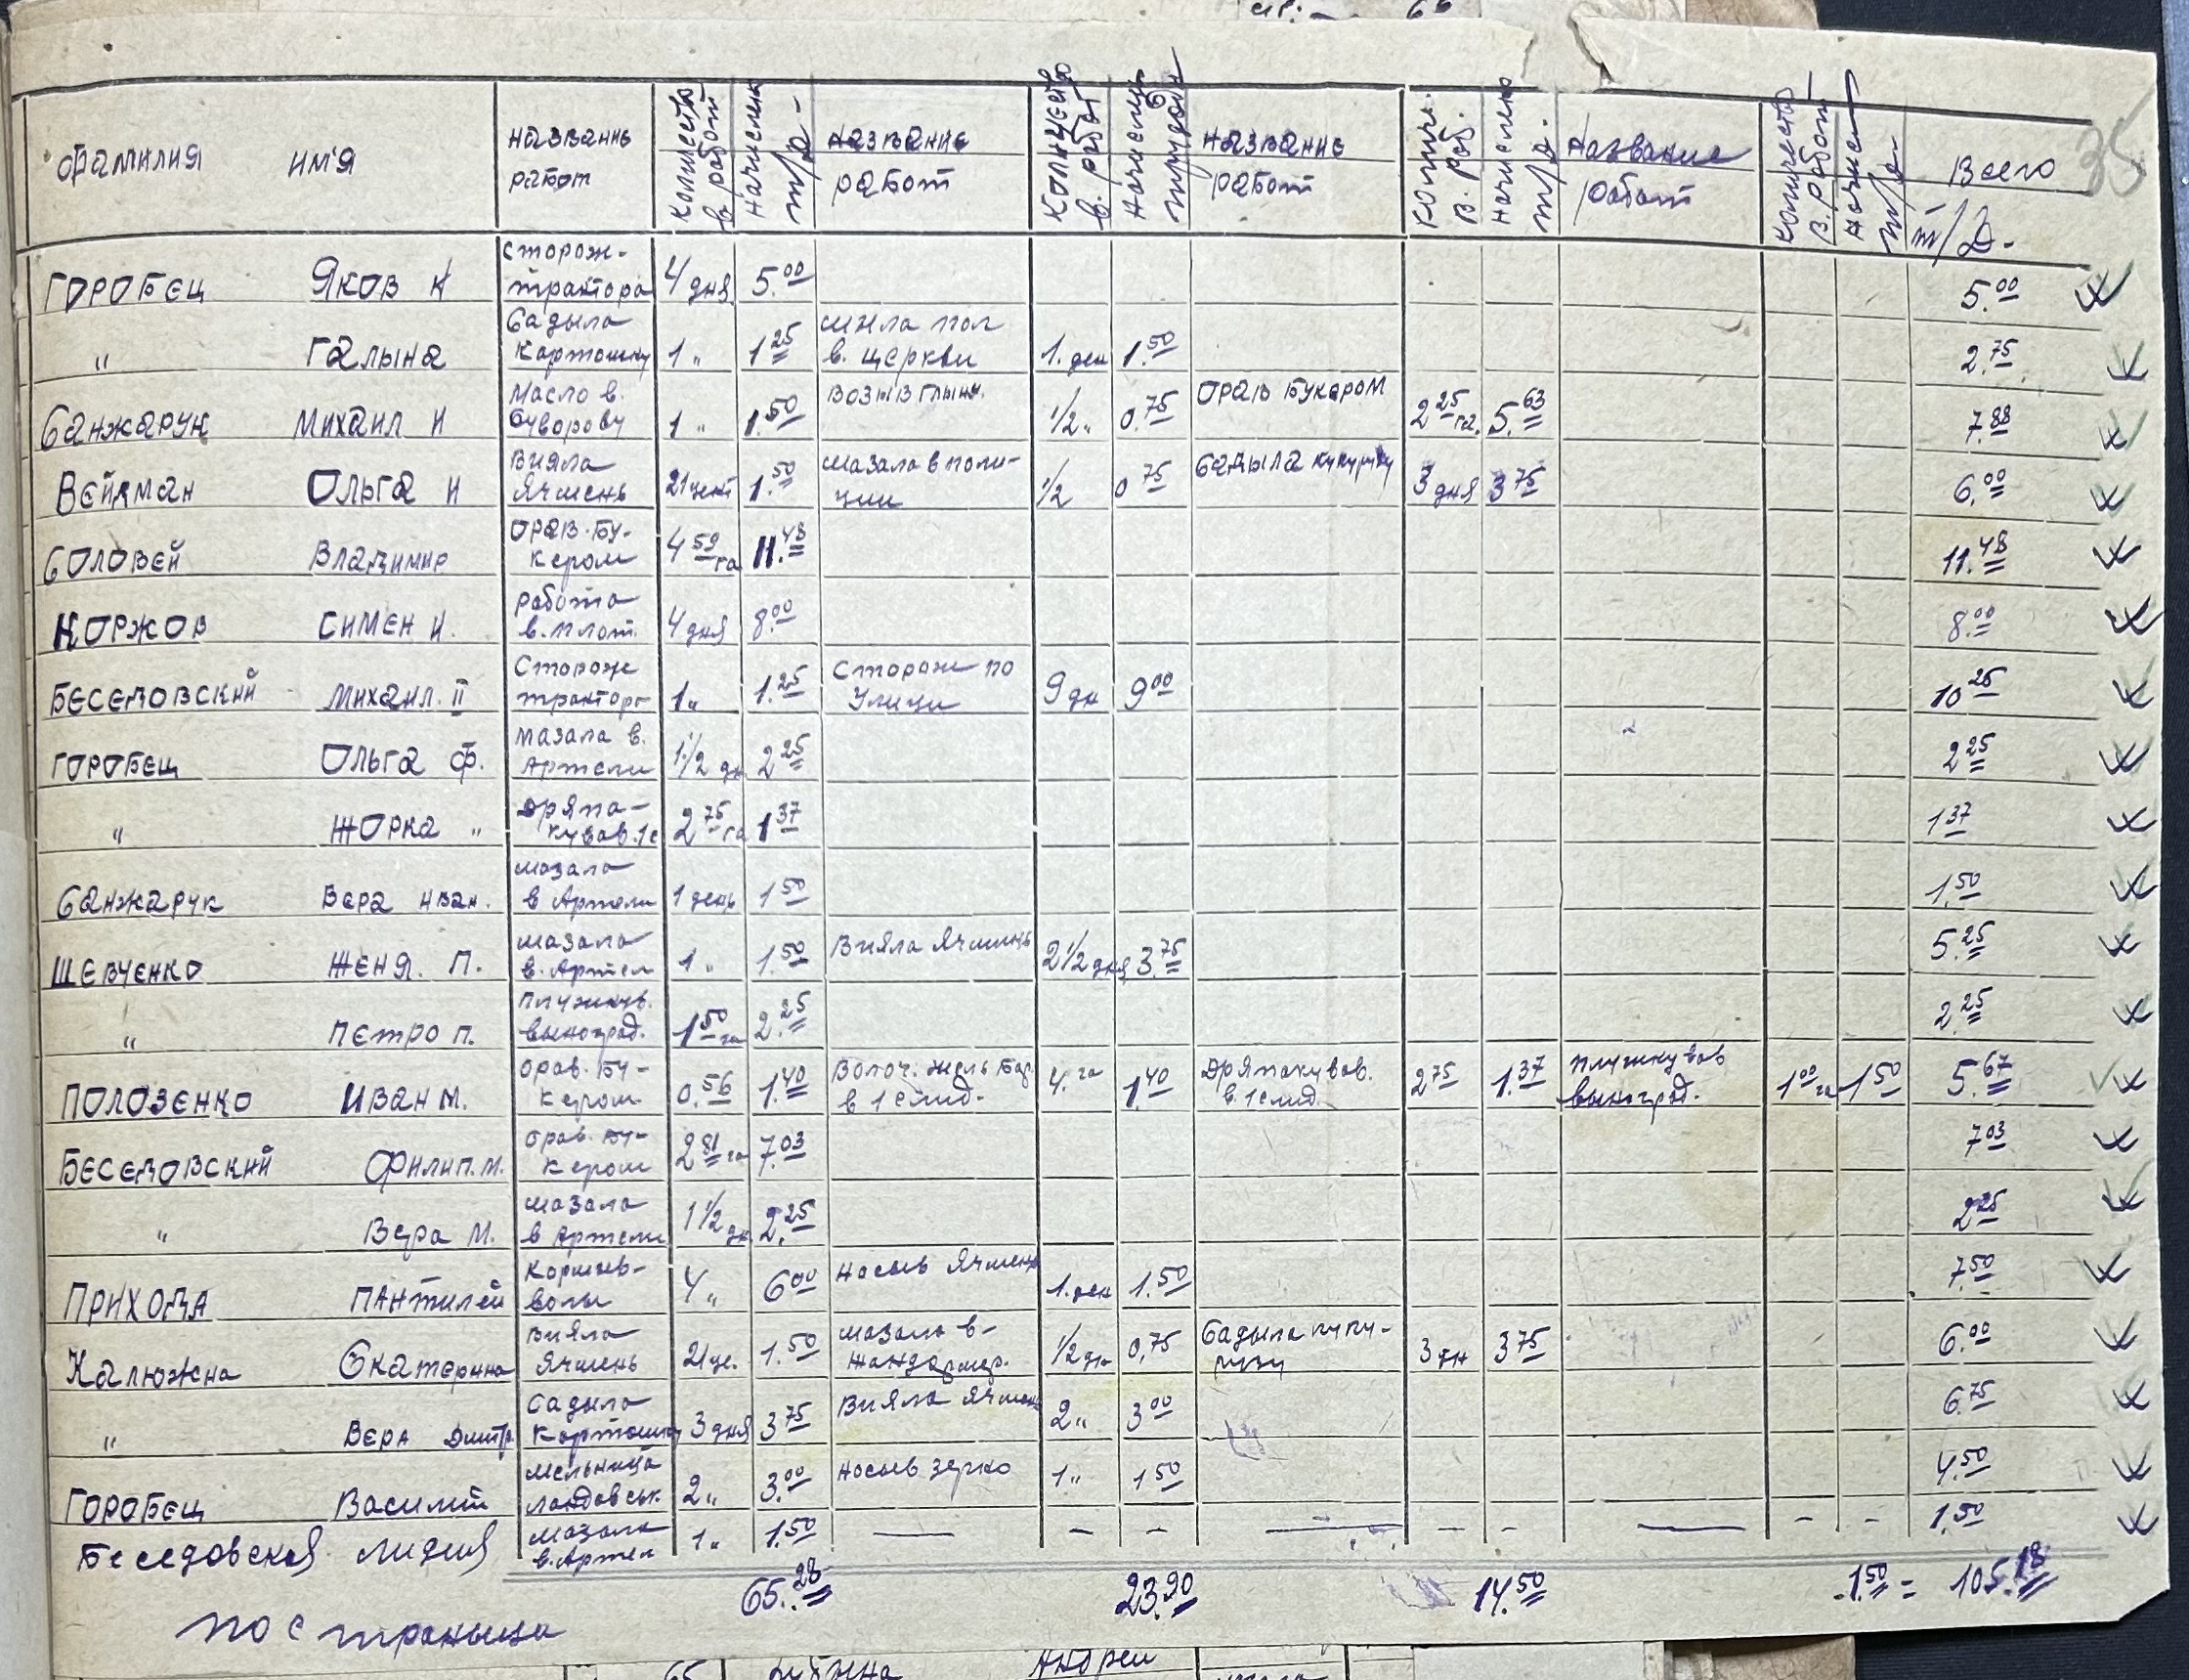 35
Фамилия имʼя название работ количество в. работ начислено т/д- название работ количество в. работ начислено трудодн название работ количе. в. раб. начислено т/д. название работ количество в. работ начислено т/д- Всего т/д-
Горобец Яков К сторож-трактора 4 дня 5.00 5.00
" Галына садыла картошку 1 " 1 25 мила пол в. церкви 1. ден 1.50 2.75
Санжарук Михаил И масло в. Суворову 1 " 1.50 возыв глыну. 1/2 " 0.75 орав букером 2 25 га. 5.63 7.88
Вейдман Ольга И вияла ячмень 21 цент 1.50 мазала в полиции 1/2 0 75 садыла кукурузу 3 дня 3 75 6.00
Соловей Владимир орав. букером 4 59 га 11.48 11.48
Коржов Симен И. работа в. плот. 4 дня 8.00 8.00
Беседовский Михаил. П сторож трактора 1 " 1.25 сторож по улици 9 дн 9 00 10 25
Горобец Ольга Ф. мазала в. Артели 1 1/2 дн 2 25 2 25
" Жорка " дряпакував. 1 с 2 75 га 1 37 1 37
Санжарук Вера Иван. мазала в Артели 1 день 1 50 1.50
Шевченко Женя. П. мазала в. Артел 1 " 1.50 вияла ячмень 2 1/2 дня 3.75 5.25
" Петро П. плужкув. выноград. 1 50 га 2.25 2.25
Полозенко Иван М. орав. букером 0.56 1.40 Волоч. в 1 след. 4. га 1.40 Дряпакував. в. 1 след. 2 75 1.37 плужкував выноград. 1 00 га 1 50 5.67
Беседовский Филип. М. орав. букером 2 81 га 7.03 7 03
" Вера М. мазала в Артели 1 1/2 дн 2.25 2 25
Прихода Пантилей кормыв-волы 4 " 6 00 насыв ячмень 1. ден 1.50 7.50
Калюжна Екатерина вияла ячмень 21 це. 1.50 мазала в-жандармер. 1/2 дн 0,75 садыла кукурузу 3 дн 3 75 6.00
" Вера Дмитр. садыла картошку 3 дня 3 75 вияла ячмень 2 " 3 00 6.75
Горобец Василий мельница ландовськ. 2 " 3.00 насыв зерно 1 " 1 50 4.50
Беседовская Лидия мазала в. Артел 1 " 1.50 — - - — - - — - - 1.50
65.28 23.90 14.50 1.50 = 105.18
по странице
Андрей